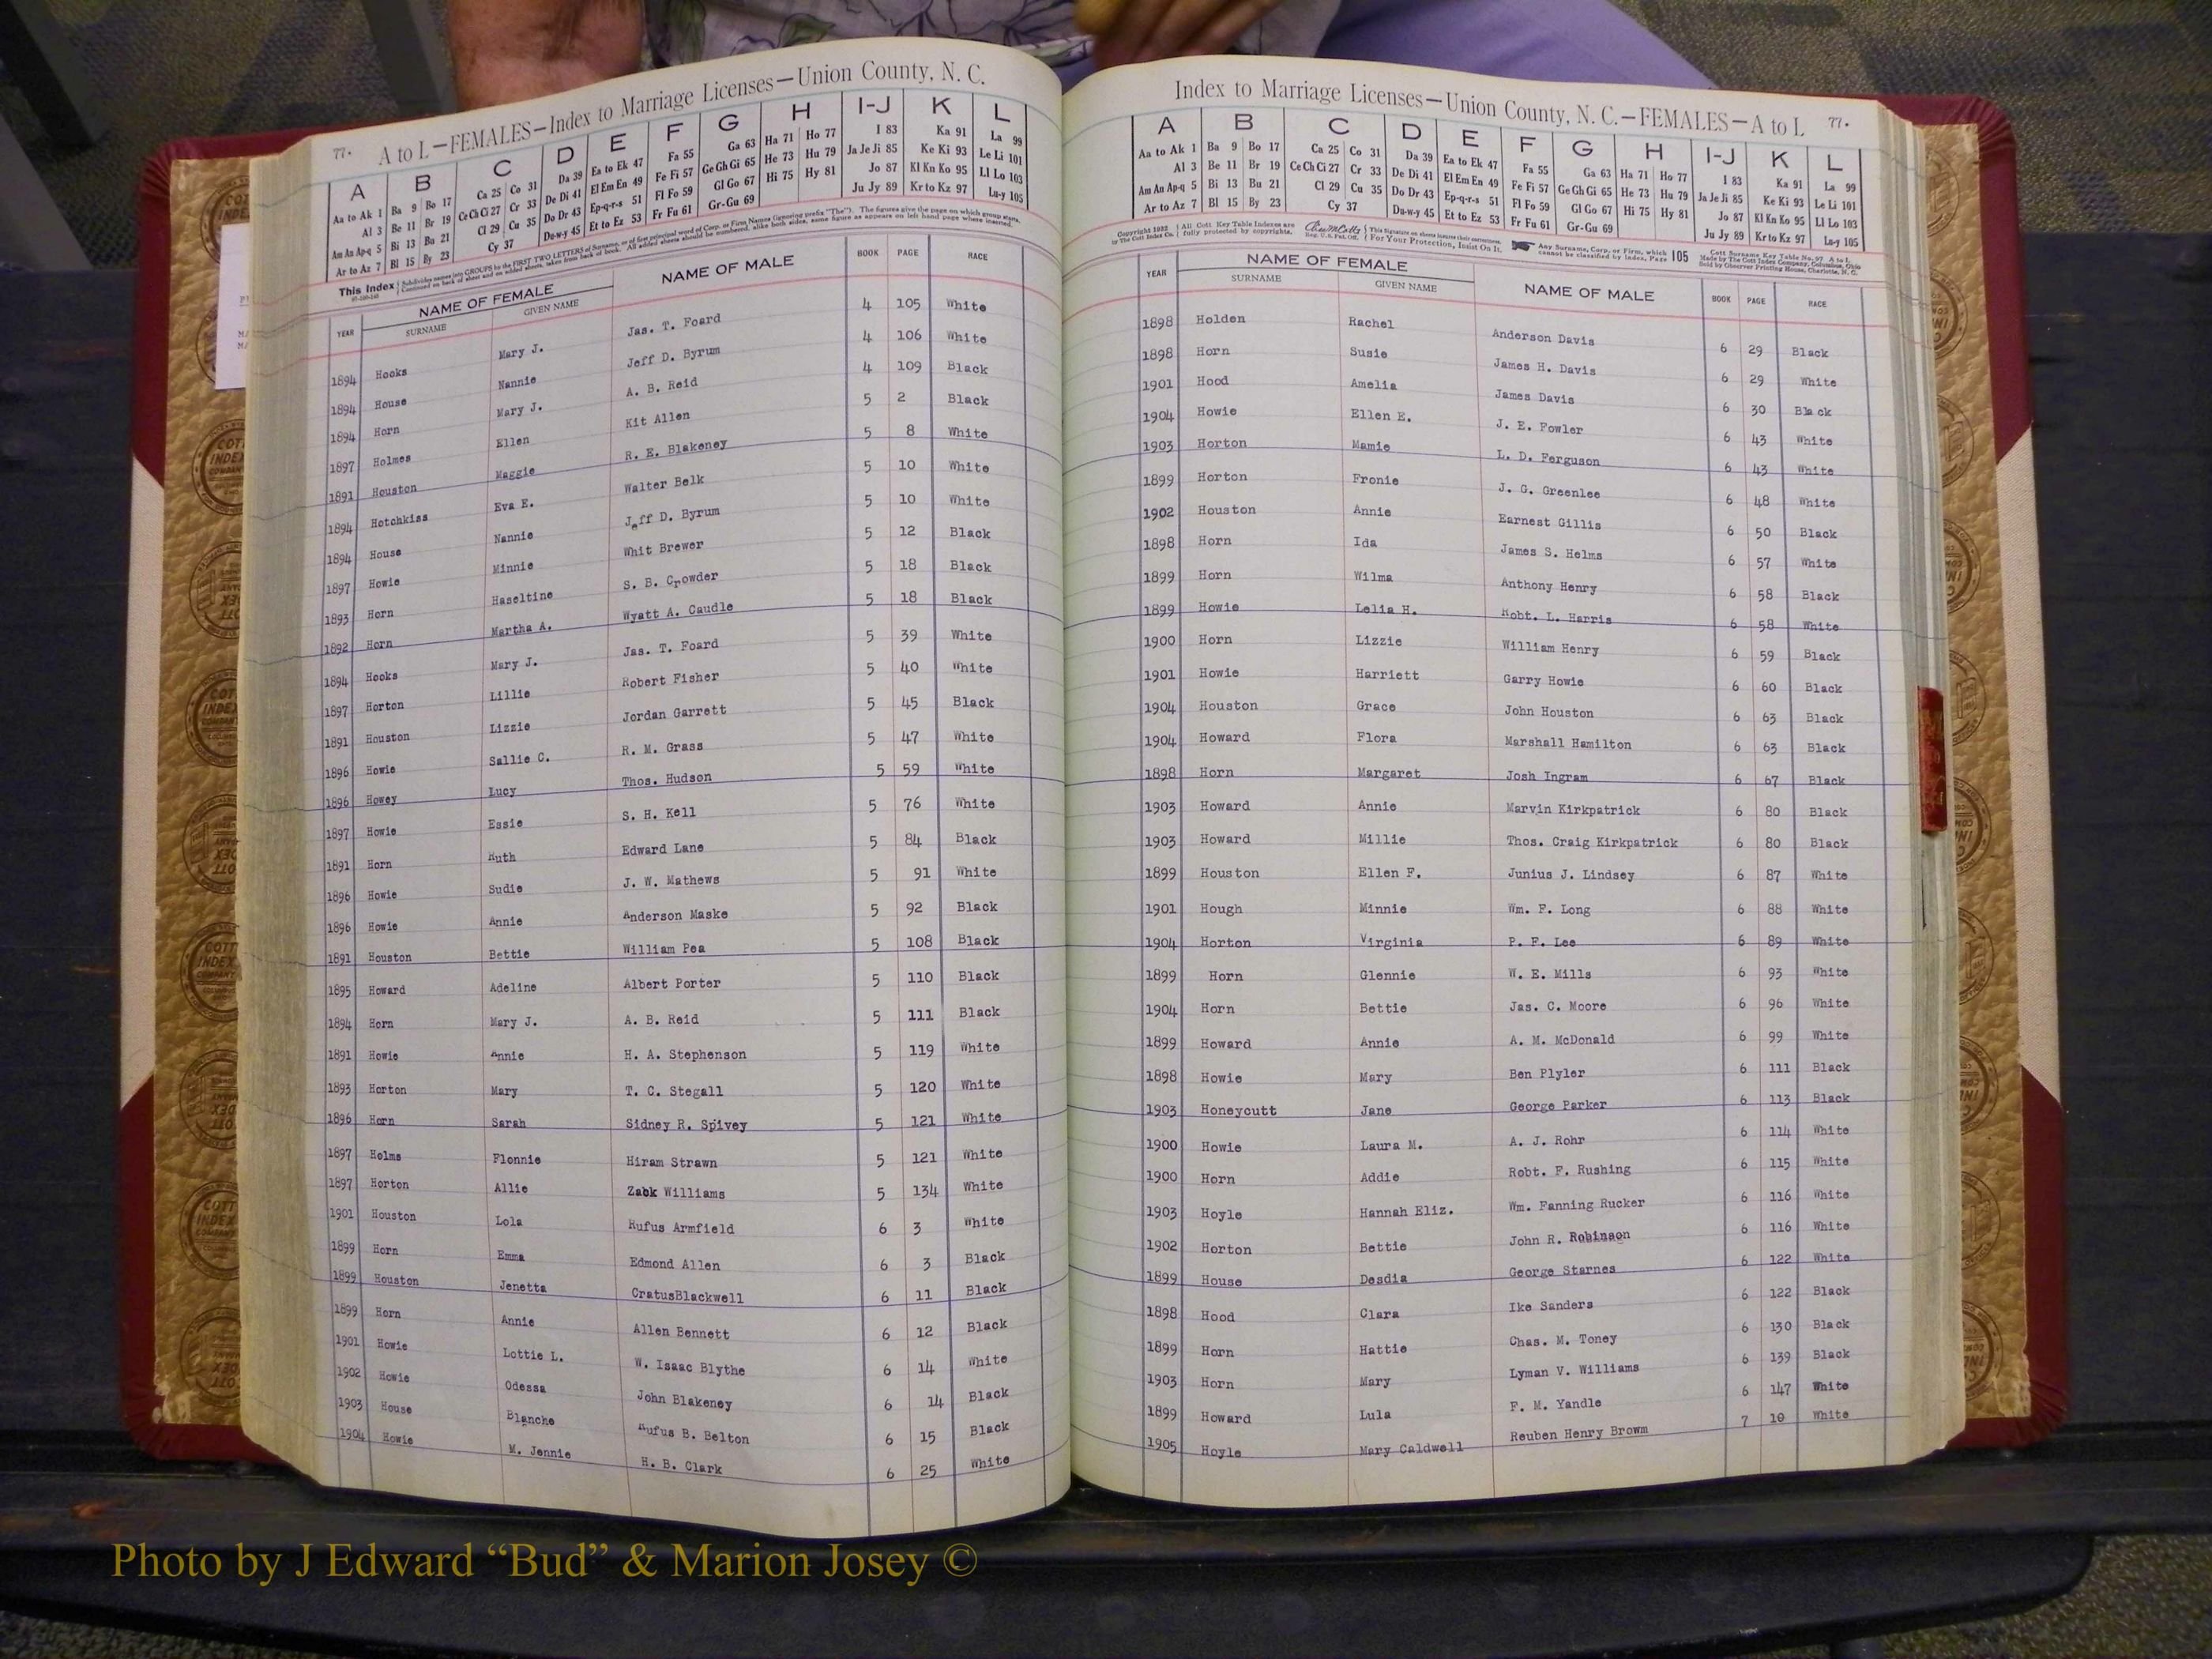 77. A to L—FEMALES—Index to Marriage Licenses—Union County, N. C.
A B C D E F G H I-J K L
Aa to Ak 1 Ba 9 Bo 17 Ca 25 Co 31 Da 39 Ea to Ek 47 Fa 55 Ga 63 Ha 71 Ho 77 I 83 Ka 91 La 99
Al 3 Be 11 Br 19 Ce Ch Ci 27 Cr 33 De Di 41 El Em En 49 Fe Fi 57 Ge Gh Gi 65 He 73 Hu 79 Ja Je Ji 85 Ke Ki 93 Le Li 101
Am An Ap-q 5 Bi 13 Bu 21 Cl 29 Cu 35 Do Dr 43 Ep-q-r-s 51 Fl Fo 59 Gl Go 67 Hi 75 Hy 81 Jo 87 Kl Kn Ko 95 Ll Lo 103
Ar to Az 7 Bl 15 By 23 Cy 37 Du-w-y 45 Et to Ez 53 Fr Fu 61 Gr-Gu 69 Ju Jy 89 Kr to Kz 97 Lu-y 105
This Index
YEAR NAME OF FEMALE SURNAME GIVEN NAME NAME OF MALE BOOK PAGE RACE
1894 Hooks Mary J. Jas. T. Foard 4 105 White
1894 House Nannie Jeff D. Byrum 4 106 White
1894 Horn Mary J. A. B. Reid 4 109 Black
1897 Holmes Ellen Kit Allen 5 2 Black
1891 Houston Maggie R. E. Blakeney 5 8 White
1894 Hotchkiss Eva E. Walter Belk 5 10 White
1894 House Nannie Jeff D. Byrum 5 10 White
1897 Howie Minnie Whit Brewer 5 12 Black
1893 Horn Haseltine S. B. Crowder 5 18 Black
1892 Horn Martha A. Wyatt A. Caudle 5 18 Black
1894 Hooks Mary J. Jas. T. Foard 5 39 White
1897 Horton Lillie Robert Fisher 5 40 White
1891 Houston Lizzie Jordan Garrett 5 45 Black
1896 Howie Sallie C. R. M. Grass 5 47 White
1896 Howey Lucy Thos. Hudson 5 59 White
1897 Howie Essie S. H. Kell 5 76 White
1891 Horn Ruth Edward Lane 5 84 Black
1896 Howie Sudie J. W. Mathews 5 91 White
1896 Howie Annie Anderson Maske 5 92 Black
1891 Houston Bettie William Pea 5 108 Black
1895 Howard Adeline Albert Porter 5 110 Black
1894 Horn Mary J. A. B. Reid 5 111 Black
1891 Howie Annie H. A. Stephenson 5 119 White
1893 Horton Mary T. C. Stegall 5 120 White
1896 Horn Sarah Sidney R. Spivey 5 121 White
1897 Helms Flonnie Hiram Strawn 5 121 White
1897 Horton Allie Zabk Williams 5 134 White
1901 Houston Lola Rufus Armfield 6 3 White
1899 Horn Emma Edmond Allen 6 3 Black
1899 Houston Jenetta CratusBlackwell 6 11 Black
1899 Horn Annie Allen Bennett 6 12 Black
1901 Howie Lottie L. W. Isaac Blythe 6 14 White
1902 Howie Odessa John Blakeney 6 14 Black
1903 House Blanche Rufus B. Belton 6 15 Black
1904 Howie M. Jennie H. B. Clark 6 25 White
Index to Marriage Licenses—Union County, N. C.—FEMALES—A to L 77.
A B C D E F G H I-J K L
Aa to Ak 1 Ba 9 Bo 17 Ca 25 Co 31 Da 39 Ea to Ek 47 Fa 55 Ga 63 Ha 71 Ho 77 I 83 Ka 91 La 99
Al 3 Be 11 Br 19 Ce Ch Ci 27 Cr 33 De Di 41 El Em En 49 Fe Fi 57 Ge Gh Gi 65 He 73 Hu 79 Ja Je Ji 85 Ke Ki 93 Le Li 101
Am An Ap-q 5 Bi 13 Bu 21 Cl 29 Cu 35 Do Dr 43 Ep-q-r-s 51 Fl Fo 59 Gl Go 67 Hi 75 Hy 81 Jo 87 Kl Kn Ko 95 Ll Lo 103
Ar to Az 7 Bl 15 By 23 Cy 37 Du-w-y 45 Et to Ez 53 Fr Fu 61 Gr-Gu 69 Ju Jy 89 Kr to Kz 97 Lu-y 105
Any Surname, Corp. or Firm, which cannot be classified by Index, Page 105
YEAR NAME OF FEMALE SURNAME GIVEN NAME NAME OF MALE BOOK PAGE RACE
1898 Holden Rachel Anderson Davis 6 29 Black
1898 Horn Susie James H. Davis 6 29 White
1901 Hood Amelia James Davis 6 30 Black
1904 Howie Ellen E. J. E. Fowler 6 43 White
1903 Horton Mamie L. D. Ferguson 6 43 White
1899 Horton Fronie J. G. Greenlee 6 48 White
1902 Houston Annie Earnest Gillis 6 50 Black
1898 Horn Ida James S. Helms 6 57 White
1899 Horn Wilma Anthony Henry 6 58 Black
1899 Howie Lelia H. Robt. L. Harris 6 58 White
1900 Horn Lizzie William Henry 6 59 Black
1901 Howie Harriett Garry Howie 6 60 Black
1904 Houston Grace John Houston 6 63 Black
1904 Howard Flora Marshall Hamilton 6 63 Black
1898 Horn Margaret Josh Ingram 6 67 Black
1903 Howard Annie Marvin Kirkpatrick 6 80 Black
1903 Howard Millie Thos. Craig Kirkpatrick 6 80 Black
1899 Houston Ellen F. Junius J. Lindsey 6 87 White
1901 Hough Minnie Wm. F. Long 6 88 White
1904 Horton Virginia P. F. Lee 6 89 White
1899 Horn Glennie W. E. Mills 6 93 White
1904 Horn Bettie Jas. C. Moore 6 96 White
1899 Howard Annie A. M. McDonald 6 99 White
1898 Howie Mary Ben Plyler 6 111 Black
1903 Honeycutt Jane George Parker 6 113 Black
1900 Howie Laura M. A. J. Rohr 6 114 White
1900 Horn Addie Robt. F. Rushing 6 115 White
1903 Hoyle Hannah Eliz. Wm. Fanning Rucker 6 116 White
1902 Horton Bettie John R. Robinson 6 116 White
1899 House Desdia George Starnes 6 122 White
1898 Hood Clara Ike Sanders 6 122 Black
1899 Horn Hattie Chas. M. Toney 6 130 Black
1903 Horn Mary Lyman V. Williams 6 139 Black
1899 Howard Lula F. M. Yandle 6 147 White
1905 Hoyle Mary Caldwell Reuben Henry Browm 7 10 White
Photo by J Edward “Bud” & Marion Josey ©